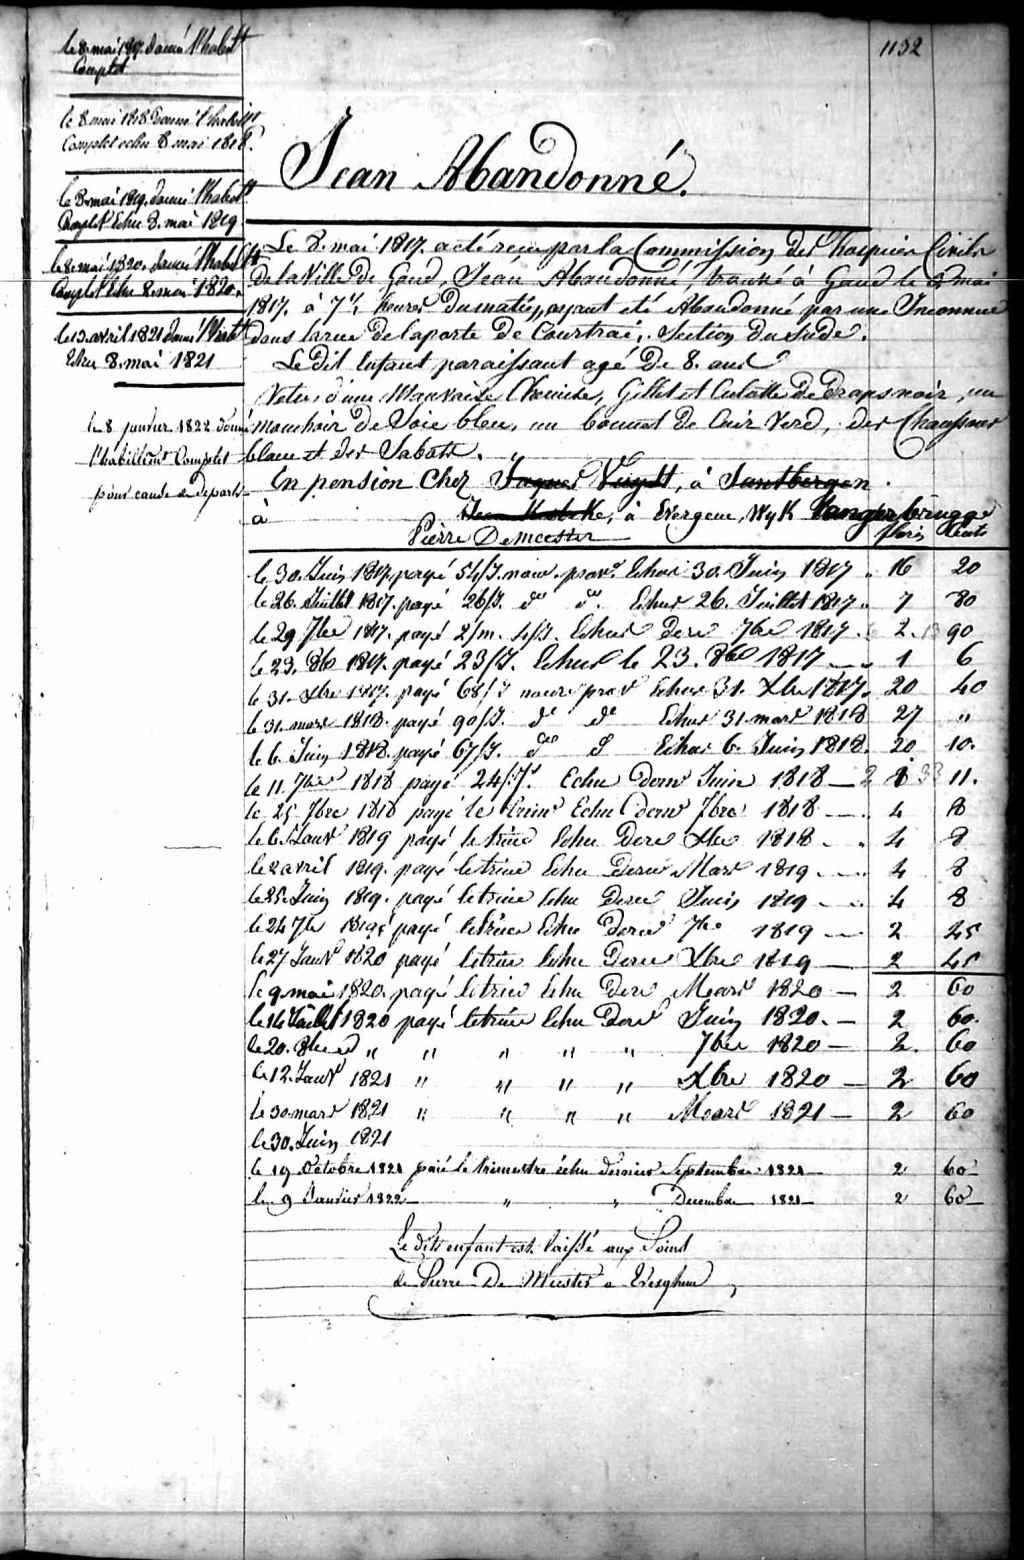 1132
le 8 mai 1817. donné l'habillt
Complet
le 8 mai 1818 donné l'habillt
Complet echu 8 mai 1818.
le 8 mai 1819. donné l'habillt
Complet Echu 8. mai 1819
le 8 mai 1820. donné l'habillt
Complet Echu 8 mai 1820.
le 13 avril 1821 donné l'
Echu 8. mai 1821
le 8 janvier 1822 donné
l'habillemt Complet
pour cause de départ
Jean Abandonné.
Le 8. mai 1817. a été reçu par la Commission des hospices Civils
de la Ville de Gand, Jean Abandonné, trouvé à Gand le 8 mai
1817. à 7 ½ heures du matin, ayant été Abandonné par une Inconnue
dans la rue de la porte de Courtrai, Section du Sud.
Le dit Enfant paraissant agé de 8. ans
Vetu, d'une Mauvaise Chemise, Gillet et Culotte de Draps noir, un
mouchoir de Soie bleu, un bonnet de Cuir Verd, des Chaussons
blanc et des Sabots.
En pension Chez Jaques, à Santbergen.
à, à Evergem, Wyk Langerbrugge
Pierre Demeester
flors Cents
le 30. Juin 1817. payé 54/J. nour. prov. Echus 30. Juin 1817 " 16 20
le 26. Juillet 1817. payé 26/J. do do. Echus 26. Juillet 1817 " 7 80
le 29 7bre 1817. payé 2/m. 4/J. Echus Dere 7bre 1817. 2. 90
le 23. 8bre 1817. payé 23/J. Echus le 23. 8bre 1817 — " 1 6
le 31. Xbre 1817. payé 68/J nour prov Echus 31. Xbre 1817. 20 40
le 31. mars 1818. payé 90/J. do do Echus 31. mars 1818 27 "
le 6. Juin 1818. payé 67/J. do do Echus 6. Juin 1818. 20 10.
le 11. 7bre 1818 payé 24/Js Echu Dern Juin 1818 — 11.
le 25 7bre 1818 payé le trime Echu dern 7bre 1818 — 4 8
le 6. Janvr 1819 payé le trime Echu Dere Xbre 1818 - 4 8
le 2 avril 1819. payé le trime Echu Dere Mars 1819 - 4 8
le 25. Juin 1819. payé le trime Echu Dere Juin 1819 - 4 8
le 24 7bre 1819 payé le trime Echu Dere 7bre 1819 — 2 45
le 27 Janvr 1820 payé le trime Echu Dere Xbre 1819 — 2 45
le 9 mai 1820. payé le trime Echu Dere Mars 1820 — 2 60
le 14 Juillet 1820 payé le trime Echu Dere Juin 1820. — 2 60.
le 20. 8bre do " " " " " 7bre 1820 — 2. 60
le 12. Janvr 1821 " " " " Xbre 1820 — 2 60
le 30 mars 1821 " " " " Mars 1821 — 2 60
le 30. Juin 1821
le 19 Octobre 1821 paié le trimestre échu dernier Septembre 1821 — 2 60 —
le 9 Janvier 1822 — " " Decembre 1821 — 2 60 —
Le dits enfant est laissé aux Soins
de Pierre De Meester a Everghem